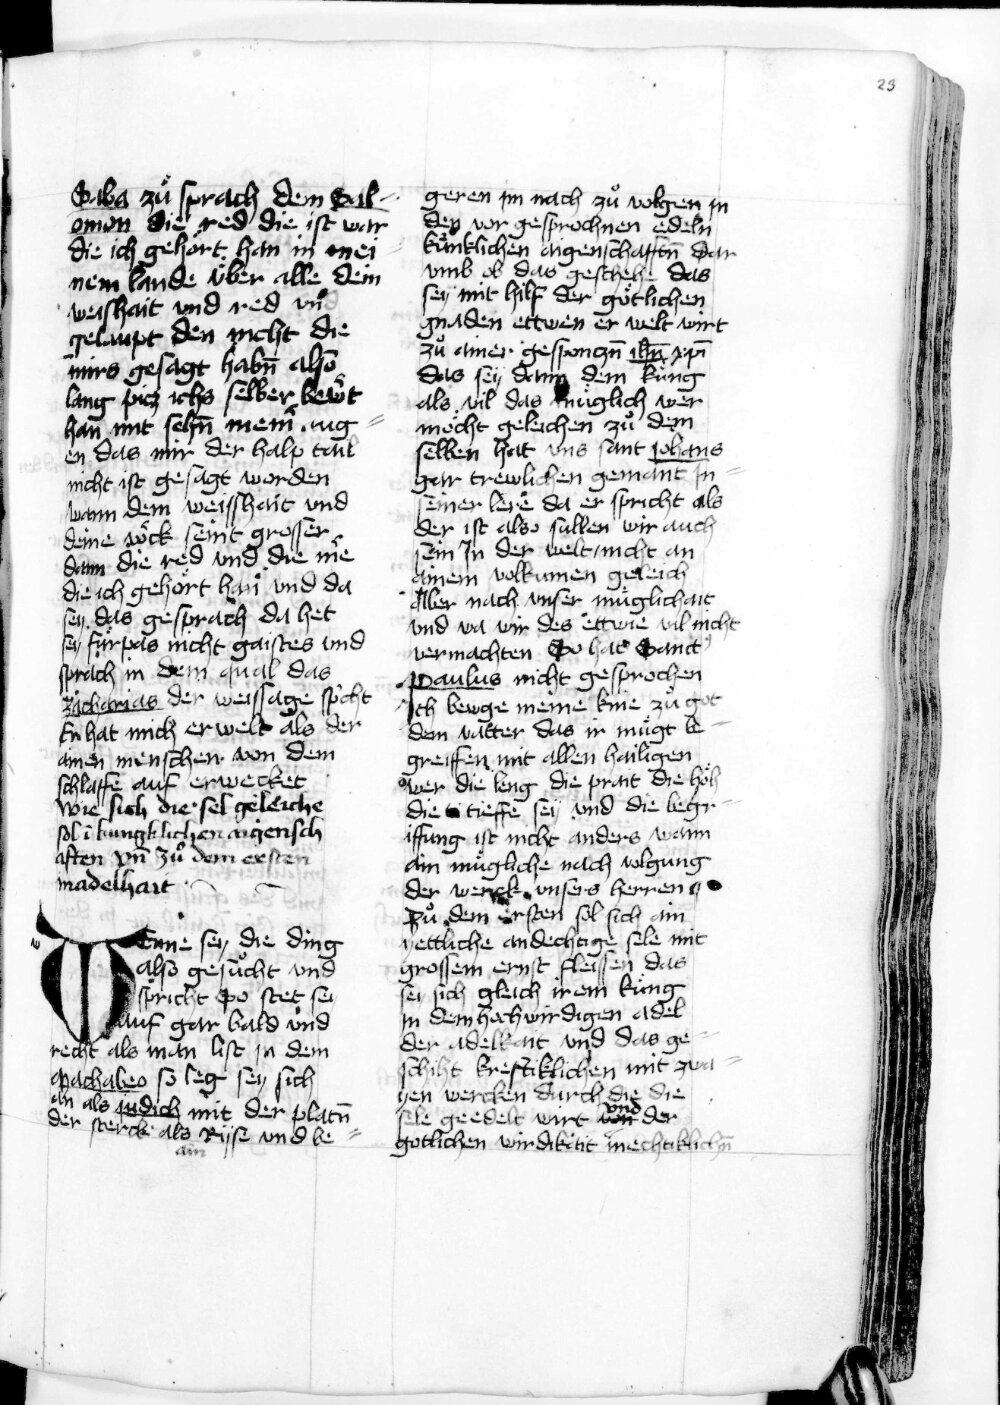 23
Saba zů sprach dem Sal-
omon die red die ist war
die ich gehört han in mei
nem lande über alle dein
weishait vnd red vn̄
gelaupt den nicht die
mirs gesagt habn̄ also
lang picz ichs selber bewët
han mit sehn̄ mein̄ aug=
en das mir der halp tail
nicht ist gesagt worden
wann dem weisshait vnd
deine wöck seint grosser
dann die red vnd die me
die ich gehört han vnd da
sey das gesprach da het
sey fürpas nicht gaistes vnd
sprach in dem qual das
zacharias der weissage spicht
Er hat mich erwekt als der
ainen menschen von dem
schlaffe auf erwecket
Wie sich die sel geleiche
sol ī kungklichen aigensch
aften vn̄ zů dem ersten
madelhait
Wenne sey die ding
also gesůcht vnd
spricht So stet sey
auf gar bald vnd
recht als man list in dem
Machabeo so leg sey sich
an als judich mit der platn̄
der stercke als Ryse vnd be=
ain
geren im nach zů volgen in
den vor gesprochnen edeln
künklichen aigenschafftn̄ Dar
vmb ob das geschehe das
sey mit hilf der götlichen
gnaden ettwen er welt wirt
zů ainer gesponczn̄ ihū xp̄i
das sey dann dem küng
als vil das müglich wer
möcht geleichen zů dem
selben hat vns sant johans
gar trewlichen gemant In=
seiner lere da er spricht als
der ist also sullen wir auch
sein In der welt nicht an
ainem volkumen geleich
Aber nach vnser müglichait
vnd wa wir des ettwie vil nicht
vermachten So hat Sanct
Paulus nicht gesprochen
Ich bewge meine knie zů got
dem vatter das ir mügt be-
greiffen mit allen hailigen
wer die leng die prait die höh
die tieffe sey vnd die begr-
iffung ist nicht anders wann
ain mügliche nach volgung
der werck vnsers herren
Zů dem ersten sol sich ain
yettliche andechtige sele mit
grossem ernst fleissen das
sey sich gleich irem küng
in dem hochwirdigen adel
der adelkait vnd das ge-
schiht kreftiklichen mit zwa=
yen wercken durch die die
sele geedelt wirt vnd von der
gotlichen wirdiketit mechtiklichn̄